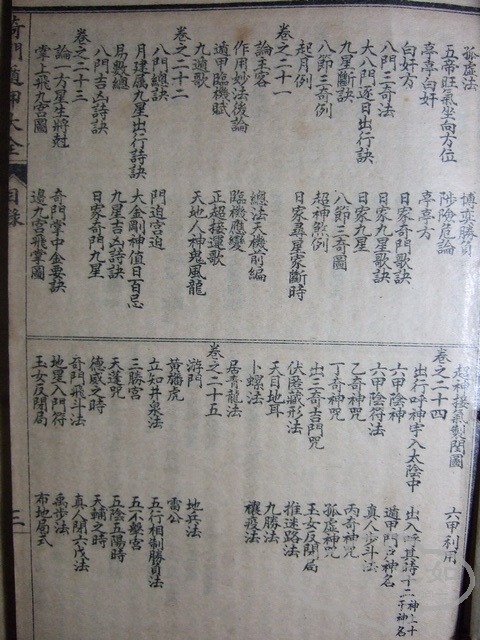 孤虛法
博奕勝負
五帝旺氣坐向方位
陟險危論
亭亭白奸
亭亭方
白奸方
八門三奇法
日家奇門歌訣
大八門逐日出行訣
日家九星歌訣
九星斷訣
日家九星
八節三奇例
八節三奇圖
起月例
超神煞例
卷之二十一
日家尋星家斷時
論主客
總法天機前編
作用妙法後論
臨機應變
遁甲臨機賦
正超接運歌
九遁歌
天地人神鬼風龍
卷之二十二
八門總訣
門迫宮迫
月建屬九星出行詩訣
大金剛神值日百忌
易數總
九星吉凶詩訣
八門吉凶詩訣
日家奇門九星
卷之二十三
論二方星生將尅
奇門掌中金要訣
掌上飛九宮圖
邊九宮飛掌圖
奇門遁甲大全
目錄
三
超神接氣製閏圖
六甲利用
卷之二十四
出行呼神字入太陰中
出入呼其詩十二神十二字神名
六甲陰神
遁甲門户神名
六甲陰符法
真人步斗法
乙奇神咒
丙奇神咒
丁奇神咒
孤虛神咒
出三奇吉門咒
玉女反閉局
伏匿藏形法
推迷路法
天目地耳
九勝法
卜螺法
禳疫法
居青龍法
卷之二十五
游門
地兵法
黃旛虎
雷公
立知井泉法
五行相制勝負法
三勝宮
五不擊宮
天蓬咒
五陰五陽時
德威之時
天輔之時
奇門飛斗法
真人閉六戊法
地星入門符
禹步法
玉女反閉局
布地局式